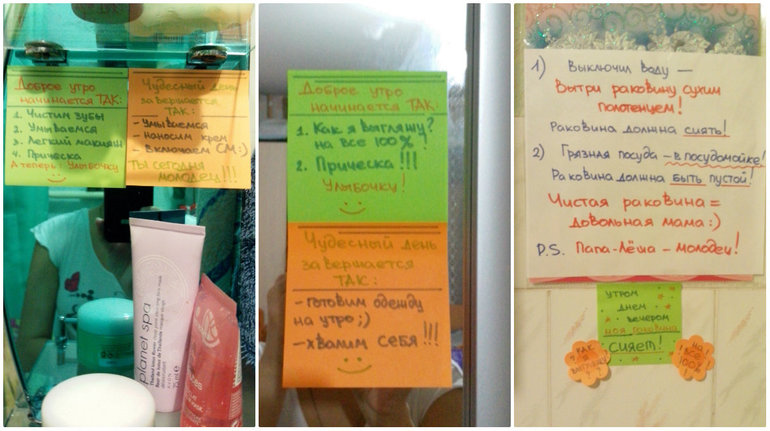 Доброе утро
начинается ТАК:
1. Чистим зубы
2. Умываемся
3. Легкий макияж
4. Прическа
А теперь: Улыбочку
Чудесный день
завершается
ТАК:
- Умываемся
- Наносим крем
- Включаем СМ:)
Ты сегодня
молодец!!!
planet spa
Доброе утро
начинается ТАК:
1. Как я выгляжу?
на все 100%!
2. Прическа!!!
Улыбочку!
Чудесный день
завершается
ТАК:
- готовим одежду
на утро;)
- хвалим себя!!!
1) Выключил воду —
Вытри раковину сухим
полотенцем!
Раковина должна сиять!
2) Грязная посуда – в посудомойке!
Раковина должна быть пустой!
Чистая раковина =
довольная мама:)
P.S. Папа-Лёша – молодец!
утром
днем
вечером
моя раковина
сияет!
Как
выгляжу?
На
все
100%